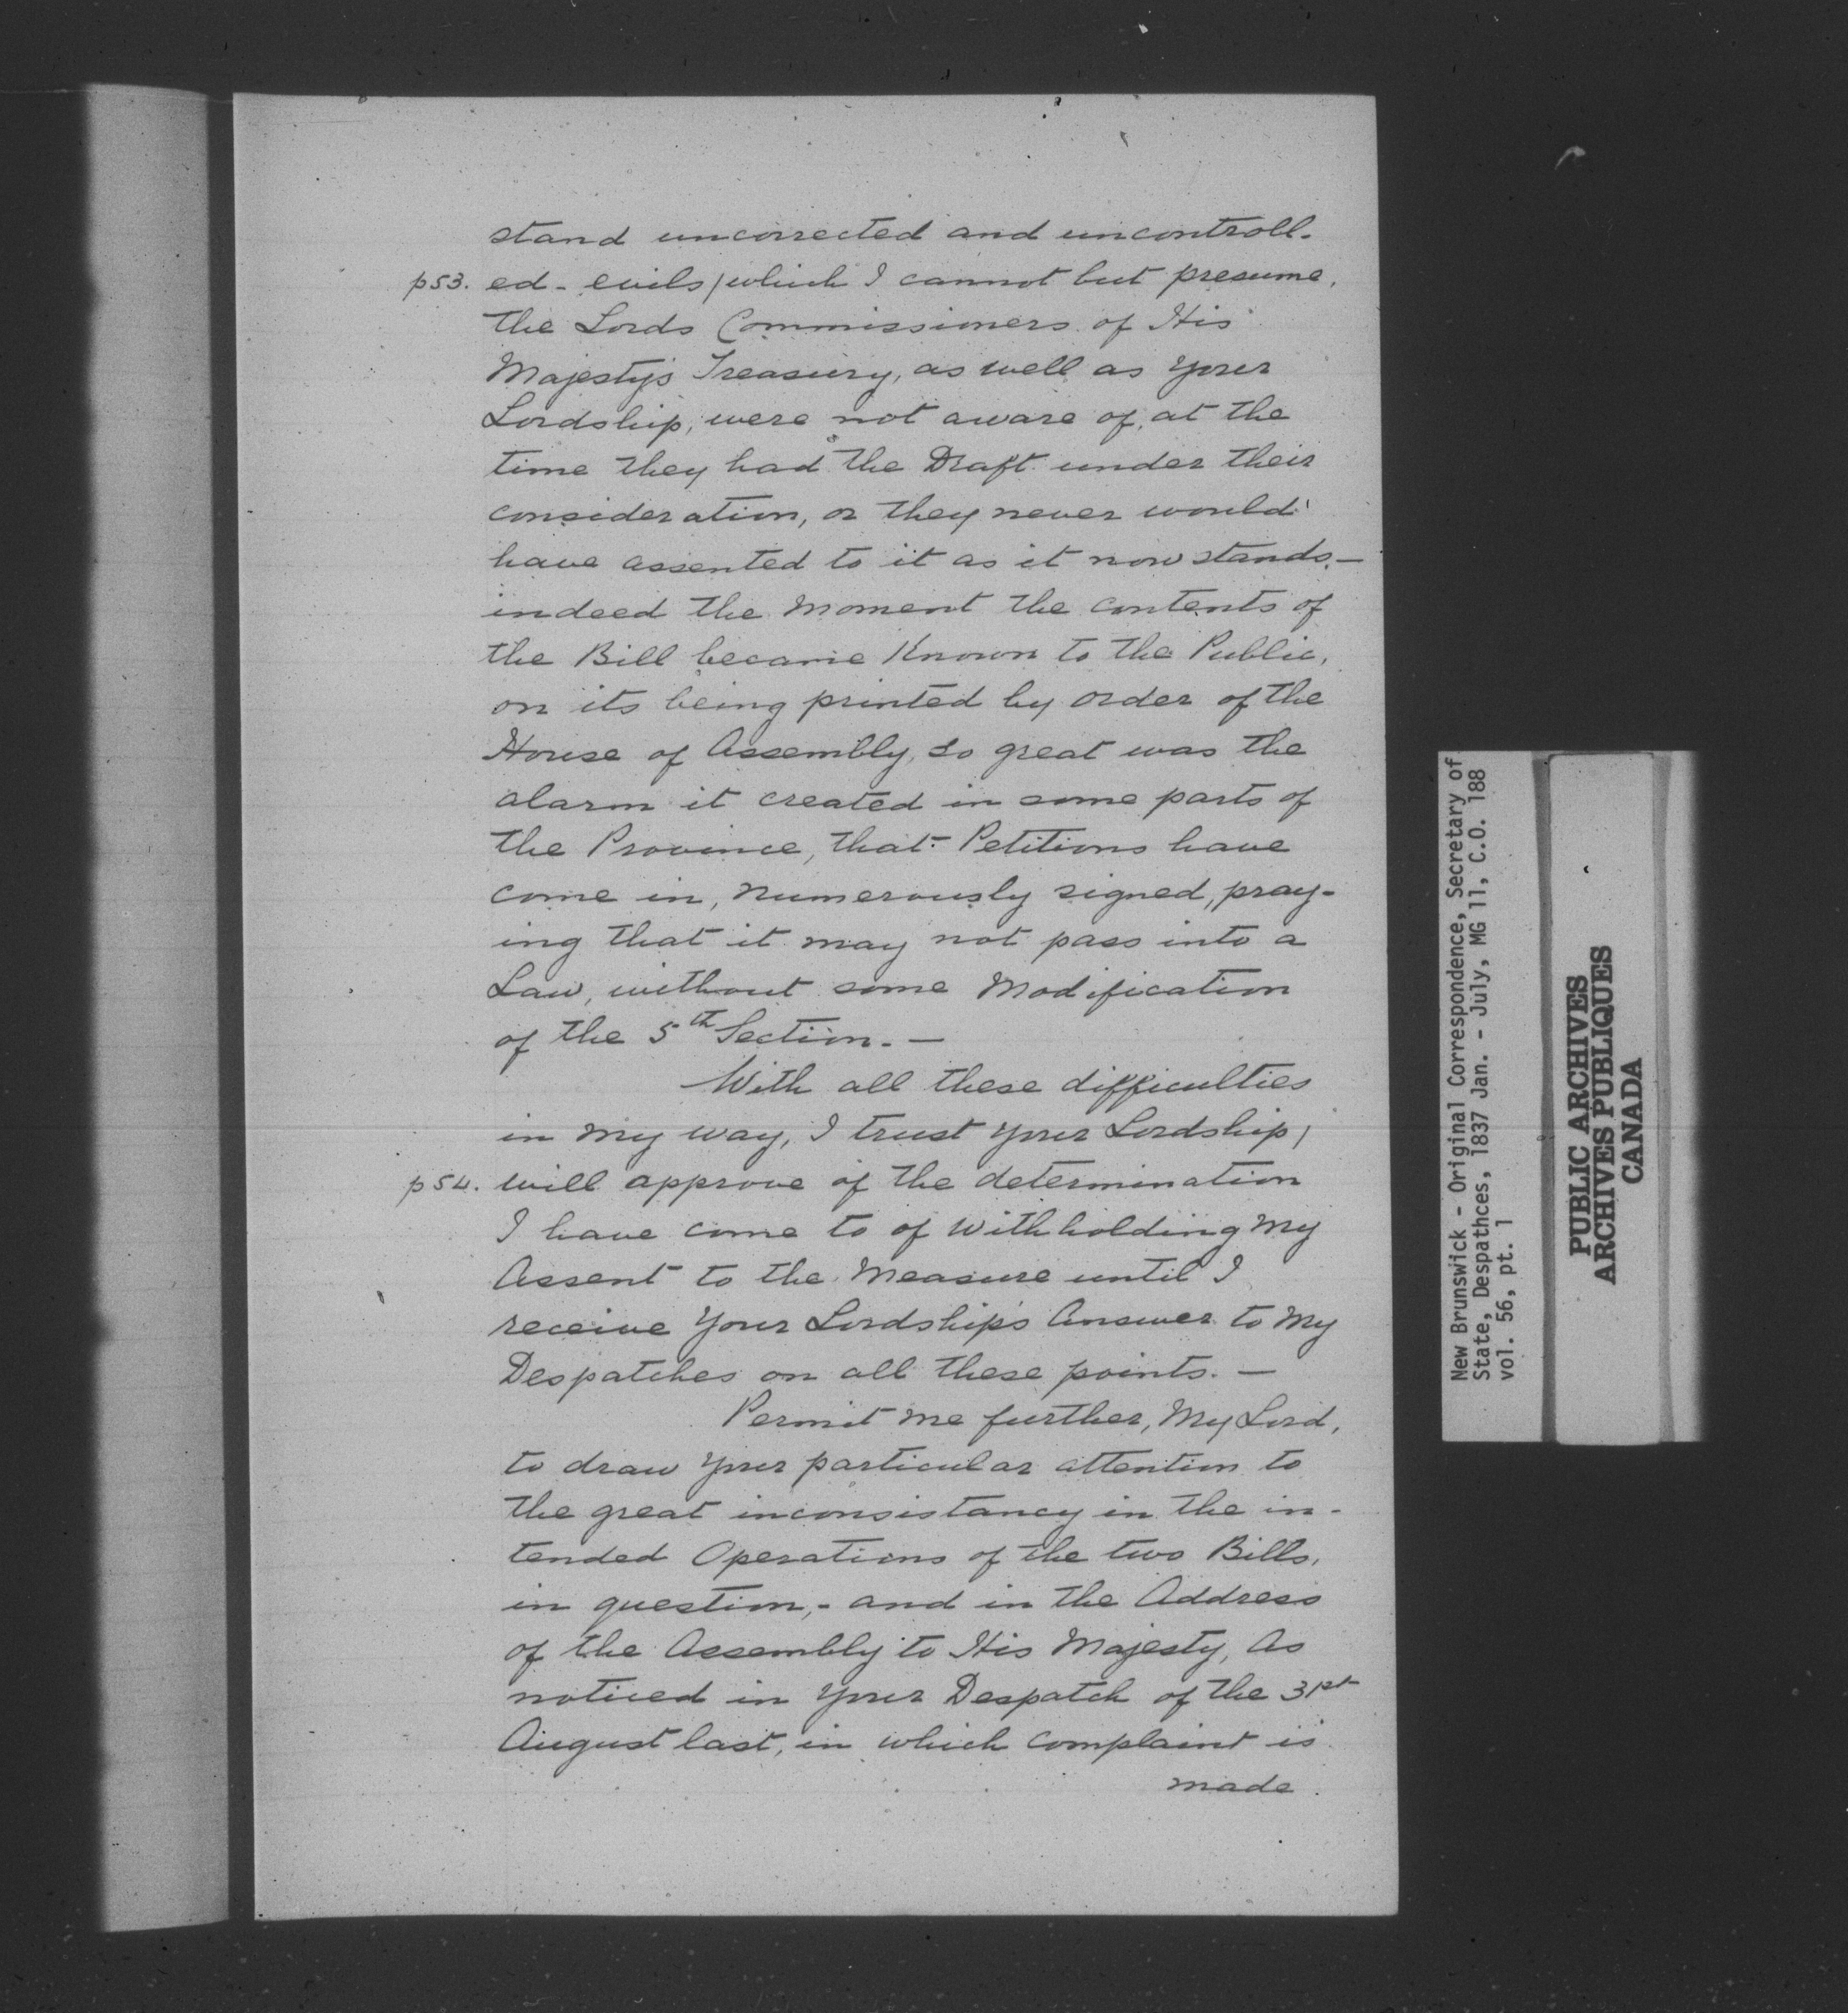 stand uncorrected and uncontroll-
p53. ed - evils / which I cannot but presume,
the Lords Commissioners of His
Majesty's Treasury, as well as Your
Lordship, were not aware of, at the
time they had the Draft under their
consideration, or they never would
have assented to it as it now stands. —
indeed the Moment the contents of
the Bill became Known to the Public,
on its being printed by order of the
House of Assembly, so great was the
alarm it created in some parts of
the Province, that Petitions have
come in, numerously signed, pray-
ing that it may not pass into a
Law, without some Modification
of the 5th Section. —
With all these difficulties
in my way, I trust Your Lordship /
p54. will approve of the determination
I have come to of withholding My
Assent to the Measure until I
receive Your Lordship's Answer to My
Despatches on all these points. —
Permit me further, My Lord,
to draw Your particular attention to
the great inconsistancy in the in-
tended Operations of the two Bills,
in question, - and in the Address
of the Assembly to His Majesty, As
noticed in Your Despatch of the 31st
August last, in which complaint is
made
New Brunswick - Original Correspondence, Secretary of
State, Despathces, 1837 Jan. - July, MG 11, C.O. 188
vol. 56, pt. 1
PUBLIC ARCHIVES
ARCHIVES PUBLIQUES
CANADA